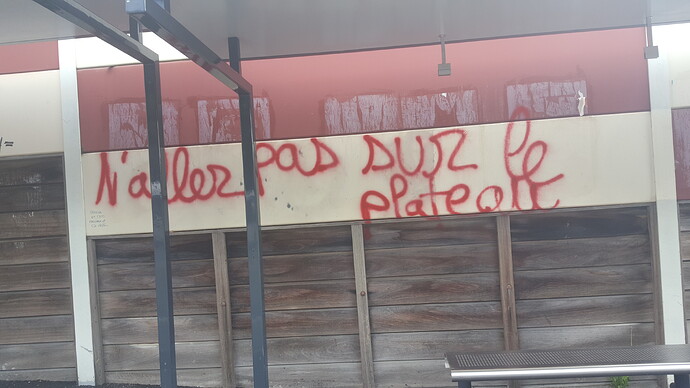 N'allez pas sur le
plateau